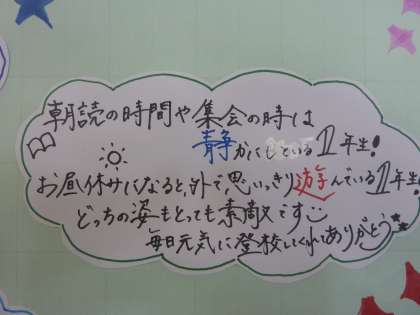 朝読の時間や集会の時は
静かにしている1年生!
お昼休みになると、外で思いっきり遊んでいる1年生!
どっちの姿もとっても素敵です
毎日元気に登校してくれてありがとう